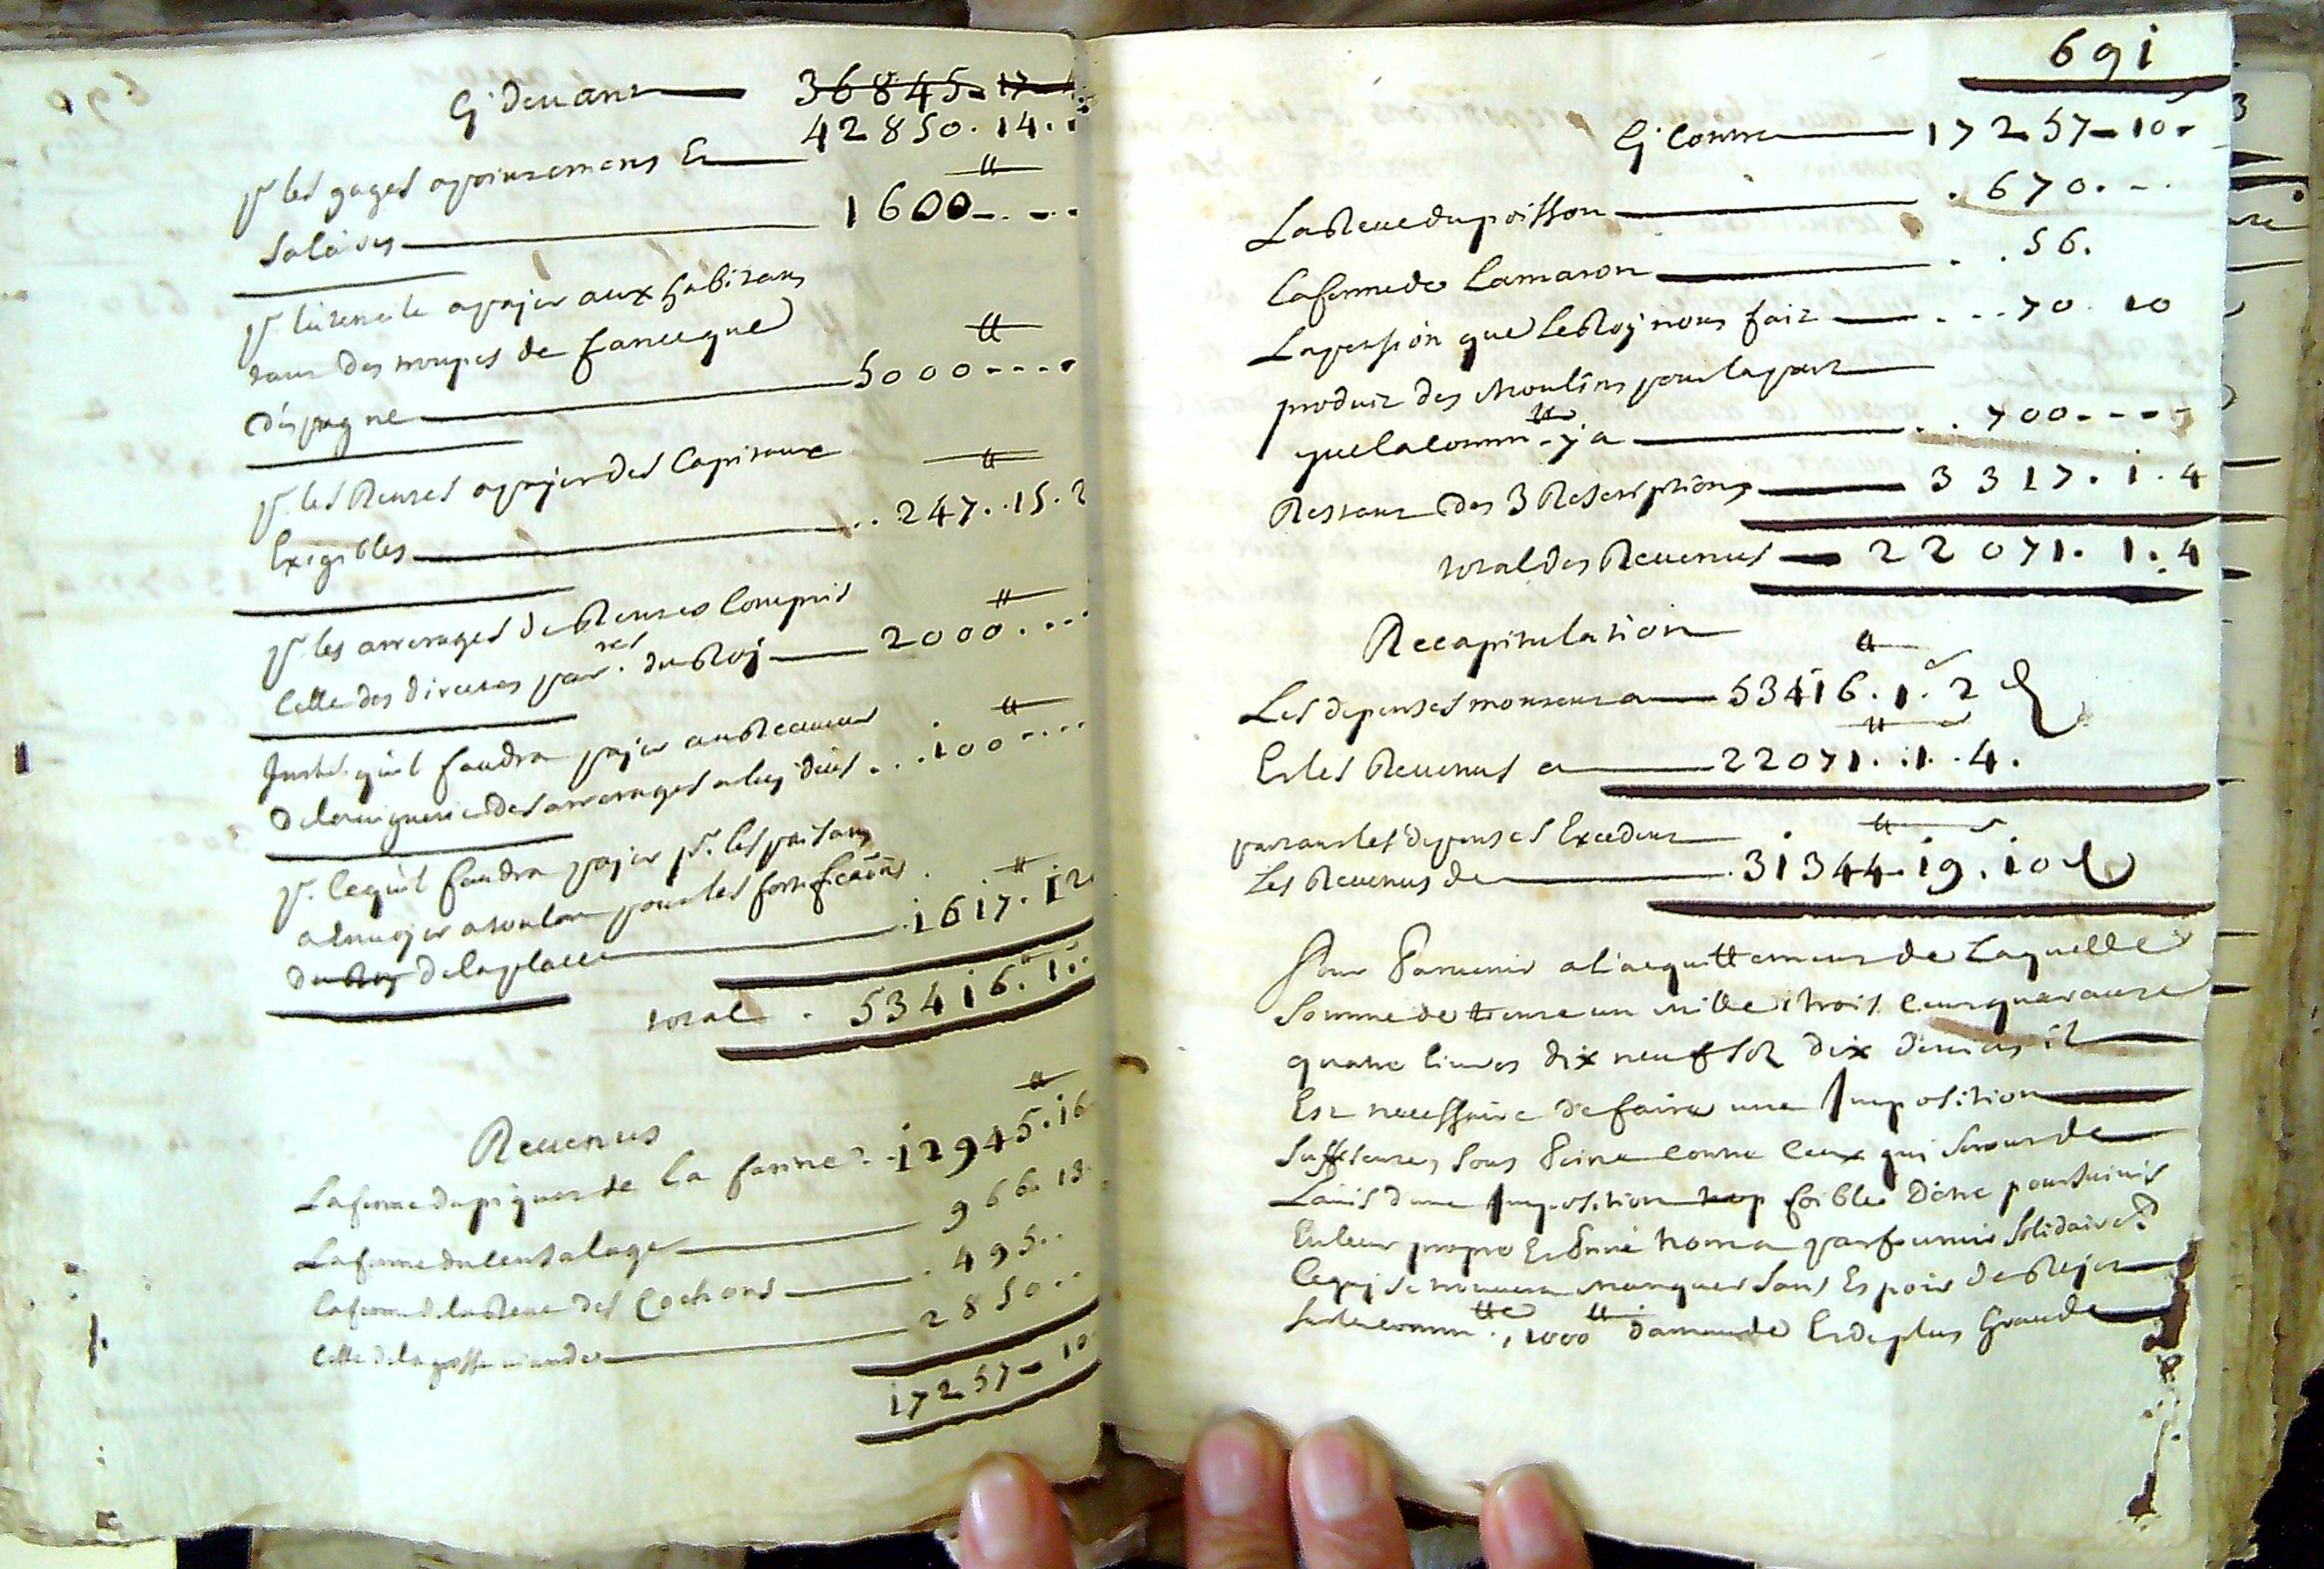 Cy devant 36845 - 17 - 4
42850 . 14 . 1
pr les gages apointemens Et
Salaires 1600 - . - .
pr l'utencile a payer aux habitans
tant des troupes de france que
d'Espagne 5000 - - - -
pr les Rentes a payer des Capitaux
Exigibles 247 . . 15 . 2
pr les arrerages de Rentes Compris
Celle des diverses parres du Roy 2000 . . . .
qu'il faudra payer au Receveur
de la viguerie des arrerages a luy deus . . . 100 - - -
pr ce qu'il faudra payer pr les paisans
a Envoyer a toulon pour les fortificaons
du Roy de la place 1617 . 12
total . 53416 . 1 .
Revenus
La ferme du piquet de la farine . . 12945 . 16
La ferme du 966 . 18
La ferme de la Reve des Cochons . 495 . .
Celle de la grosse viande 2850 . .
17257 - 10
691
Cy Contre 17257 - 10 -
La Reve du poisson . 670 . - .
La ferme de Lamaron . . 56 .
La pension que Le Roy nous fait . . . 70 . 10
produit des Moulins pour la part
que la commté y a . . 700 - - - -
Restant des 3 Rescriptions 3317 . 1 . 4
total des Revenus 22071 . 1 . 4
Recapitulation
Les depenses montent a 53416 . 1 . 2
Et les Revenus a 22071 . 1 . 4 .
partant les depenses Excedent
Les Revenus de 31344 . 19 . 10
Pour Parvenir a l'acquittement de Laquelle
Somme de trente un mille trois Cent quarante
quatre livres dix neuf sols dix deniers il
Est necessaire de faire une Imposition
Suffisente, Sous Peine contre Ceux qui Seront de
L'avis d'une Imposition trop foible D'être poursuivis
En leur propre Et Privé nom a parfournir Solidairet
Ce qui se trouvera manquer Sans Espoir de Rejet
Sur la commté, 1000 ₶ damande Et de plus Grande